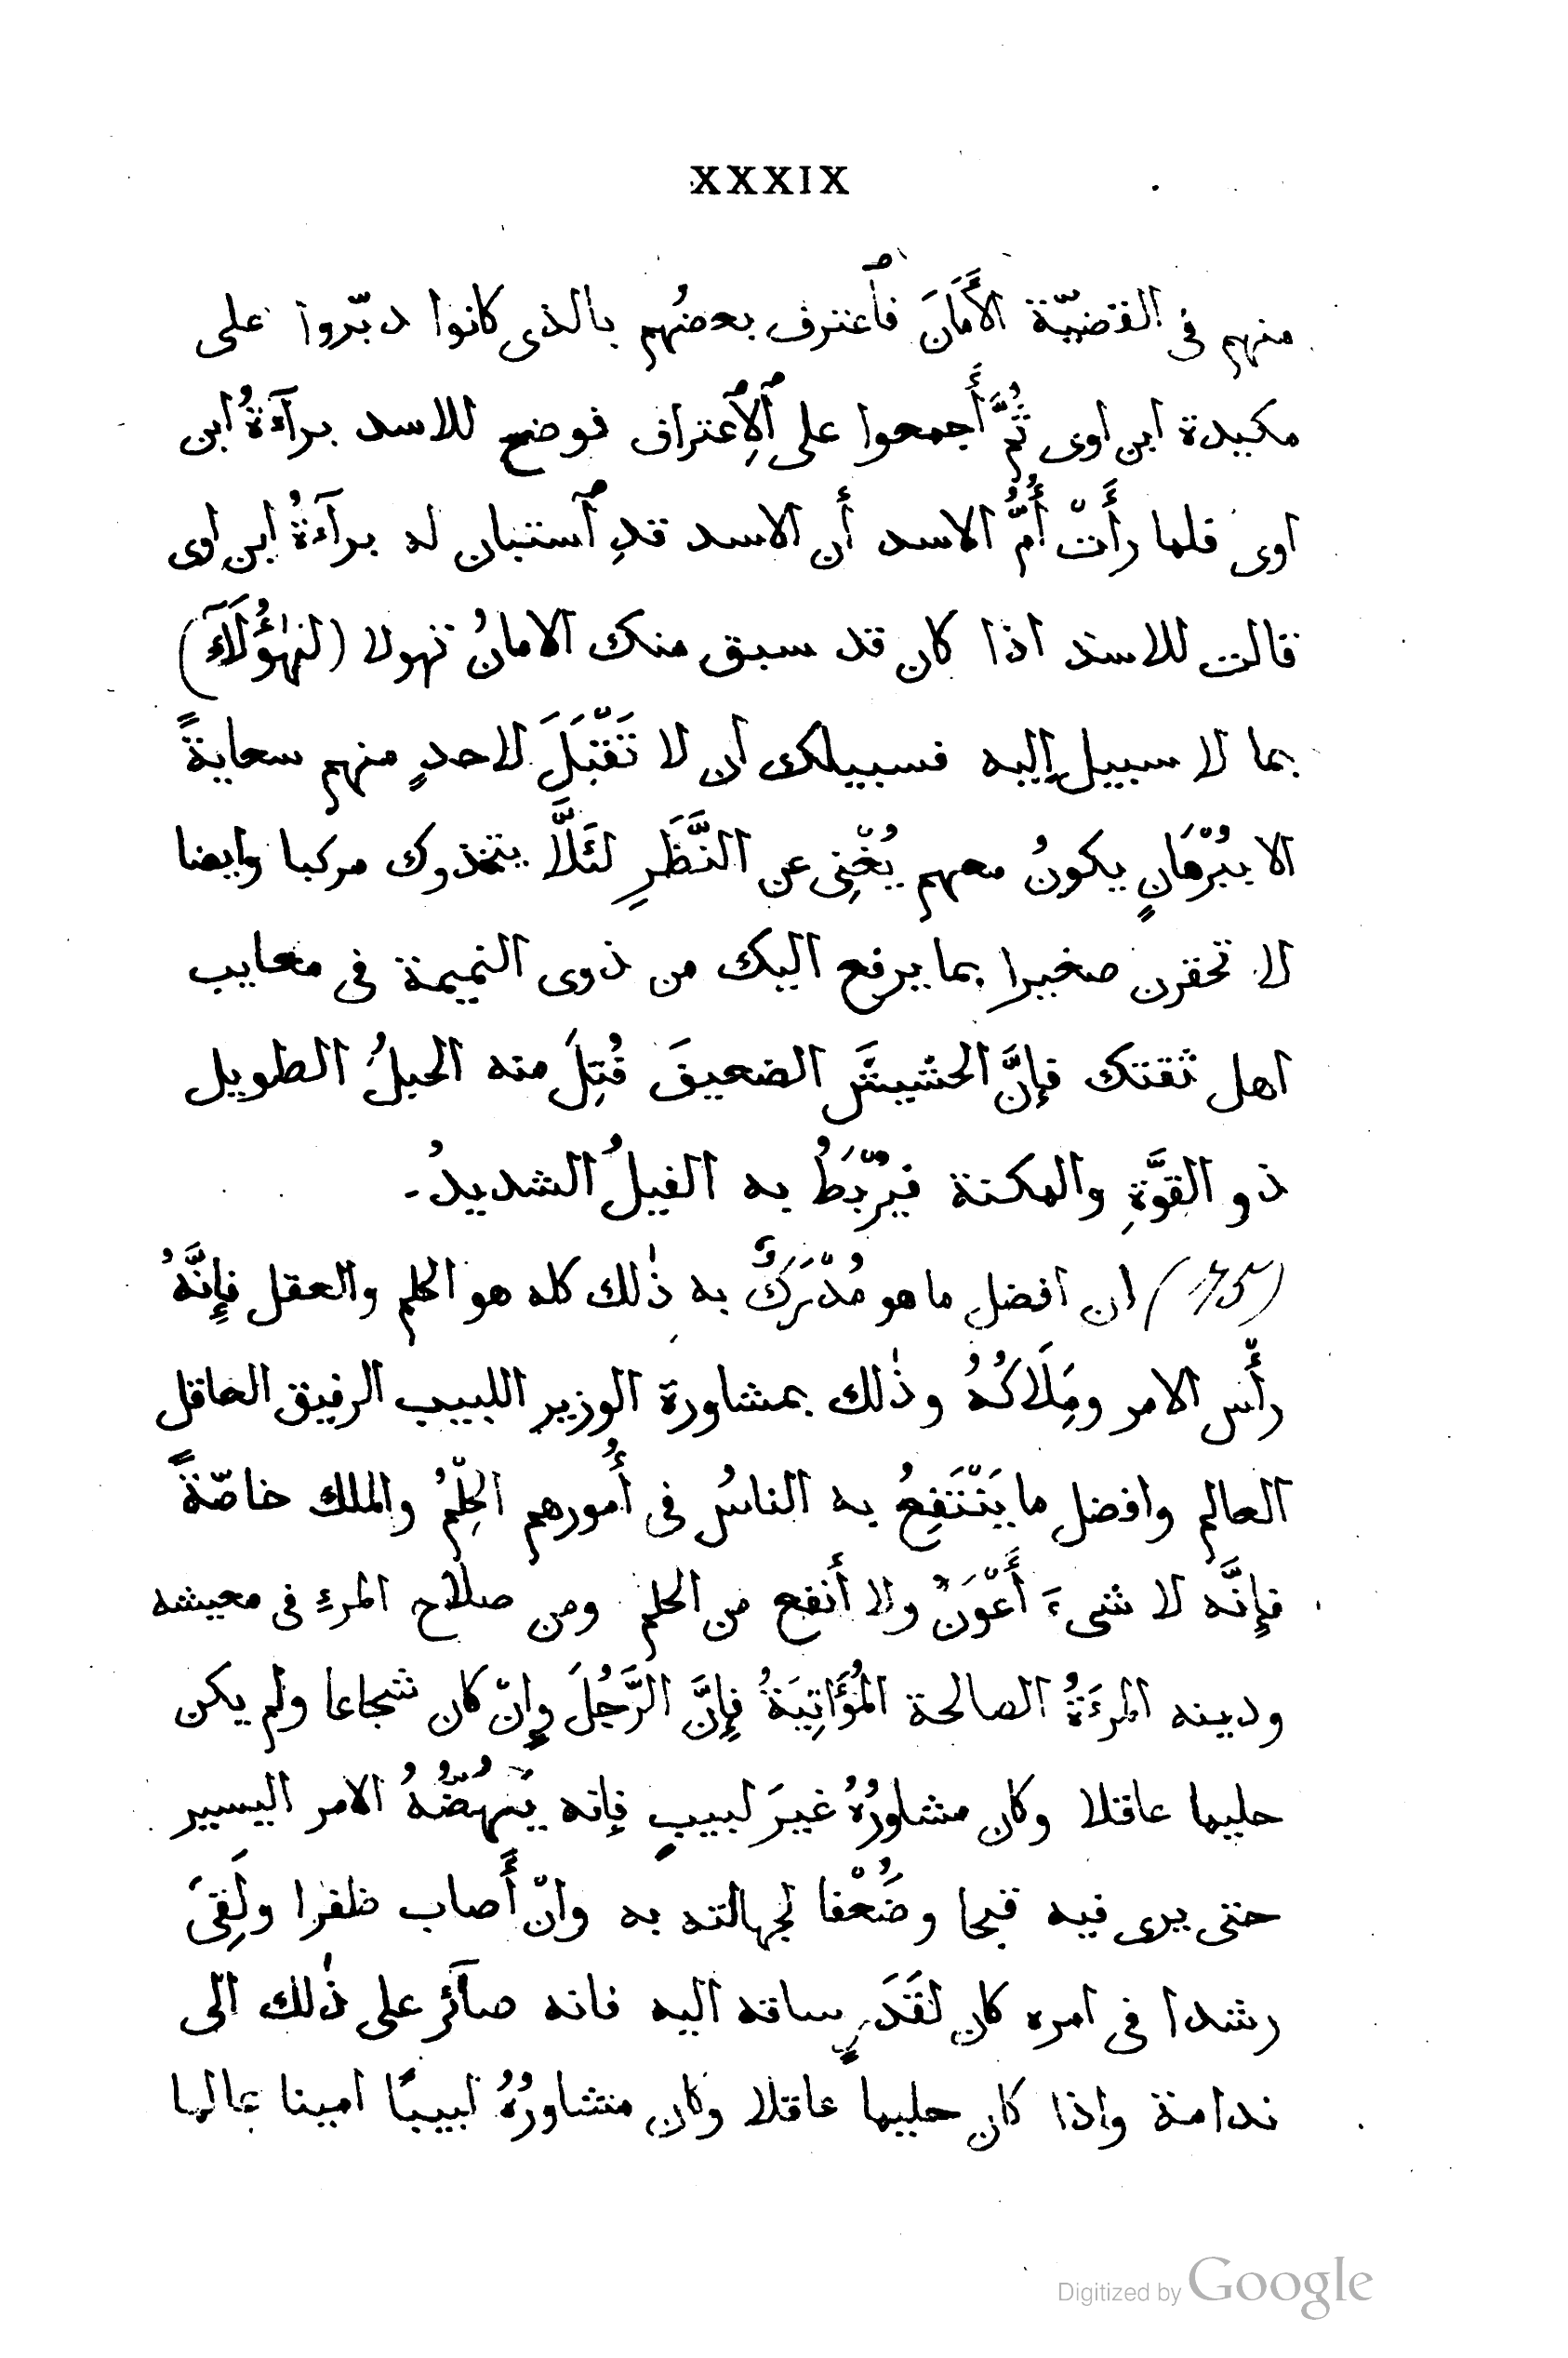 XXXIX
منهم فى القضيّة الأَمَانَ فٱعترف بعضُهم بالذى كانوا دبّروا على
مكيدة ابن اوى ثُمَّ أَجمعوا على ٱلٱِعتراف فوضح للاسد برآءةُ ابن
اوى فلما رأَتْ أُمُّ الاسد أن الاسد قدِ ٱستبان له برآءةُ ابن اوى
قالت للاسد اذا كان قد سبق منك الامانُ نهولا (لهٰؤُلَآءِ)
بما لا سبيل إليه فسبيلك ان لا تَقْبَلَ لاحدٍ منهم سعايةً
الا بِبُرْهَانٍ يكونُ معهم يُغْنِى عن النَّظَرِ لئَلَّا يتخذوك مركبا وايضا
لا تحقرن صغيرا بما يرفع اليك من ذوى النميمة فى معايب
اهل ثقتك فإنَّ الحشيشَ الضعيفَ فُتِلَ منه الحبلُ الطويل
ذو القوَّةِ والمكنة فيُرْبَطُ به الفيلُ الشديدُ.
ان افضل ما هو مُدْرَكٌ به ذٰلك كله هو الحلم والعقل فإِنَّهُ
رأْس الامر ومِلَاكُهُ وذٰلك بمشاورة الوزير اللبيب الرفيق العاقل
العالم وافضل ما يَنْتَفِعُ به الناسُ فى أُمورهم الحِلْمُ والملك خاصّةً
فإِنَّه لا شىءَ أَعْوَنُ ولا أنفع من الحلم ومن صلاح المرءِ فى معيشه
ودينه المرءَةُ الصالحة المُؤَاتِيَةُ فإِنَّ الرَّجُلَ وإِنْ كان شجاعا ولم يكن
حليما عاقلا وكان مشاورُهُ غيرَ لبيبٍ فإنه يَبْهُضُهُ الامر اليسير
حتى يرى فيه قبحا وضُعْفا لجهالته به وانْ أَصاب ظفرا ولَقِىَ
رشدا فى امره كان لقَدَرٍ ساقه اليه فانه صآئر على ذٰلك الى
ندامة واذا كان حليما عاقلا وكان مشاورُهُ لبيبًا امينا عالما
Digitized by Google